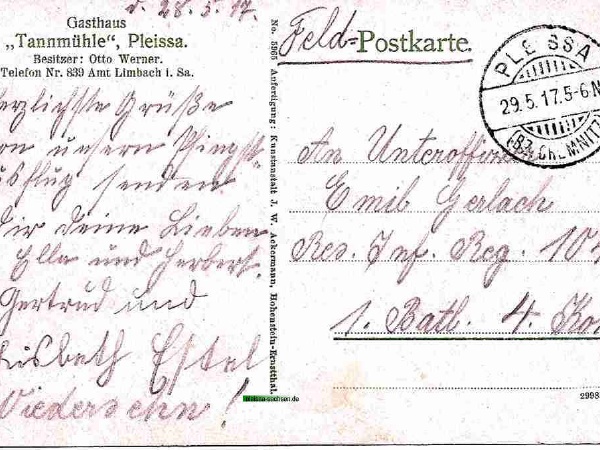 d. 28.5.17.
Gasthaus
„Tannmühle“, Pleissa.
Besitzer: Otto Werner.
Telefon Nr. 839 Amt Limbach i. Sa.
erzlichste Grüße
on unsern Pfingst-
usflug senden
Dir deine Lieben
Ella und Herbert.
Gertrud und
Lisbeth Estel
Wiedersehn!
No. 5965 Anfertigung: Kunstanstalt J. W. Ackermann, Hohenstein-Ernstthal.
Feld=Postkarte.
PLEISSA
29.5.17.5-6N
(BZ. CHEMNITZ)
An Unteroffizier
Emil Gerlach
Res. Inf. Reg. 10
1. Batl. 4. Ko
pleissa-sachsen.de
2998